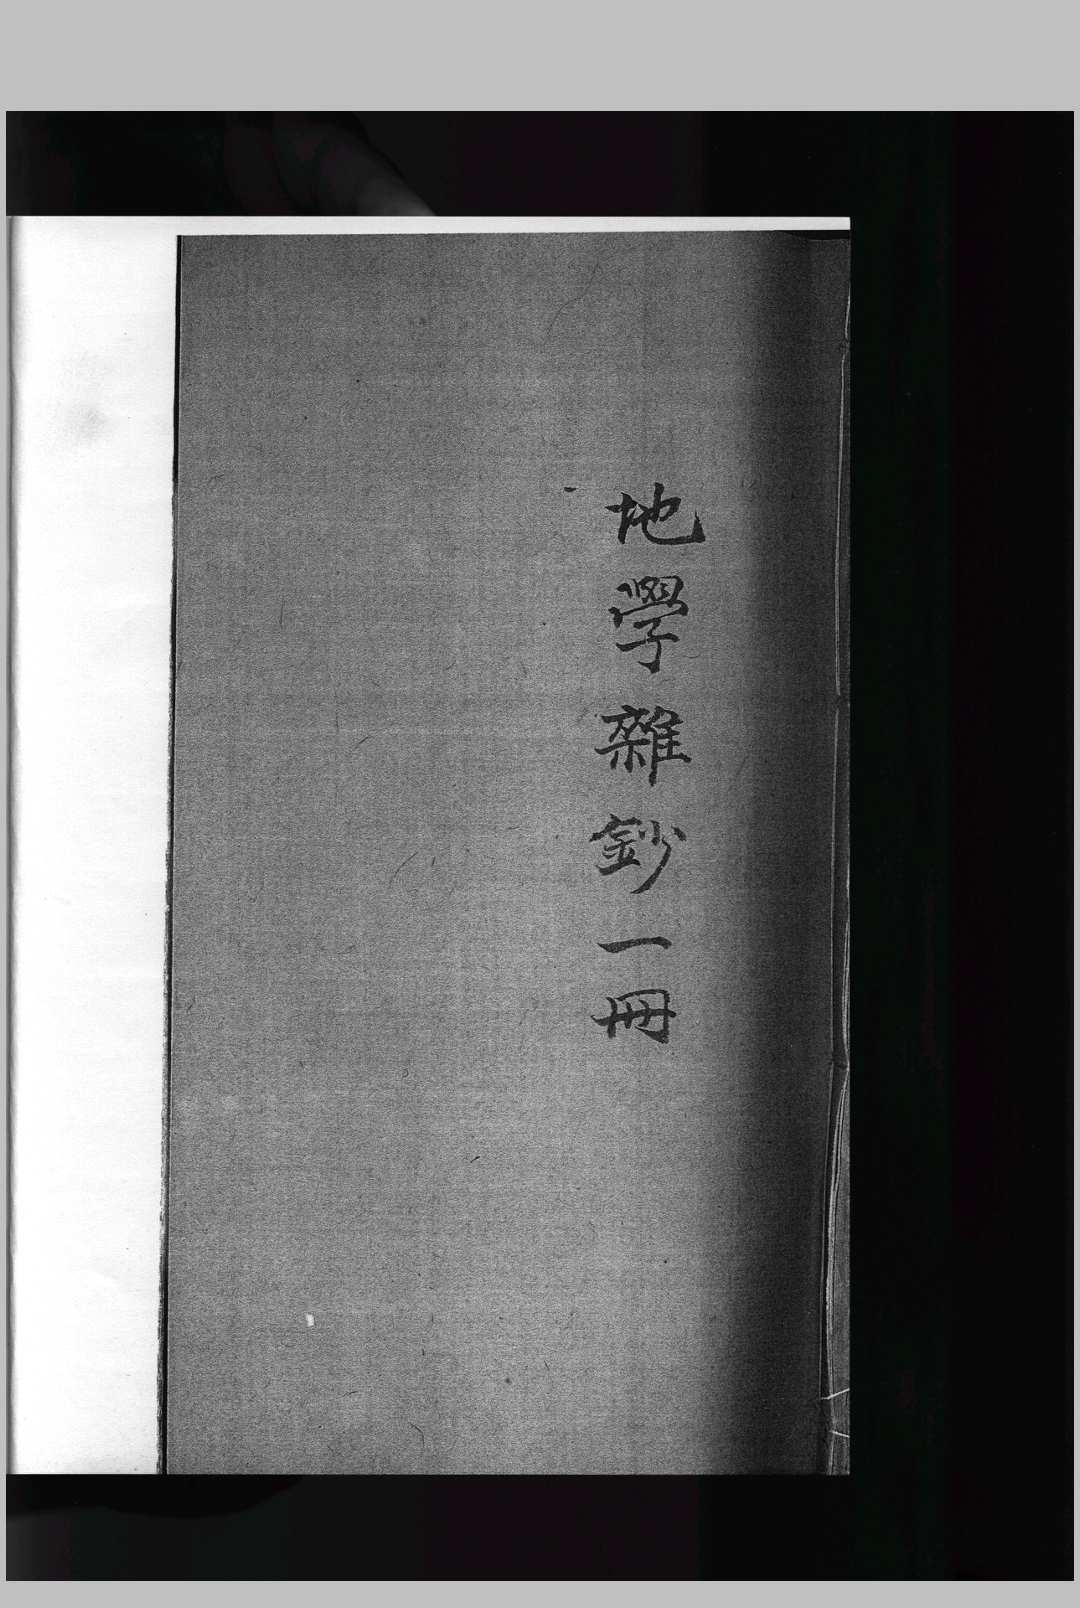 地學雜鈔一冊